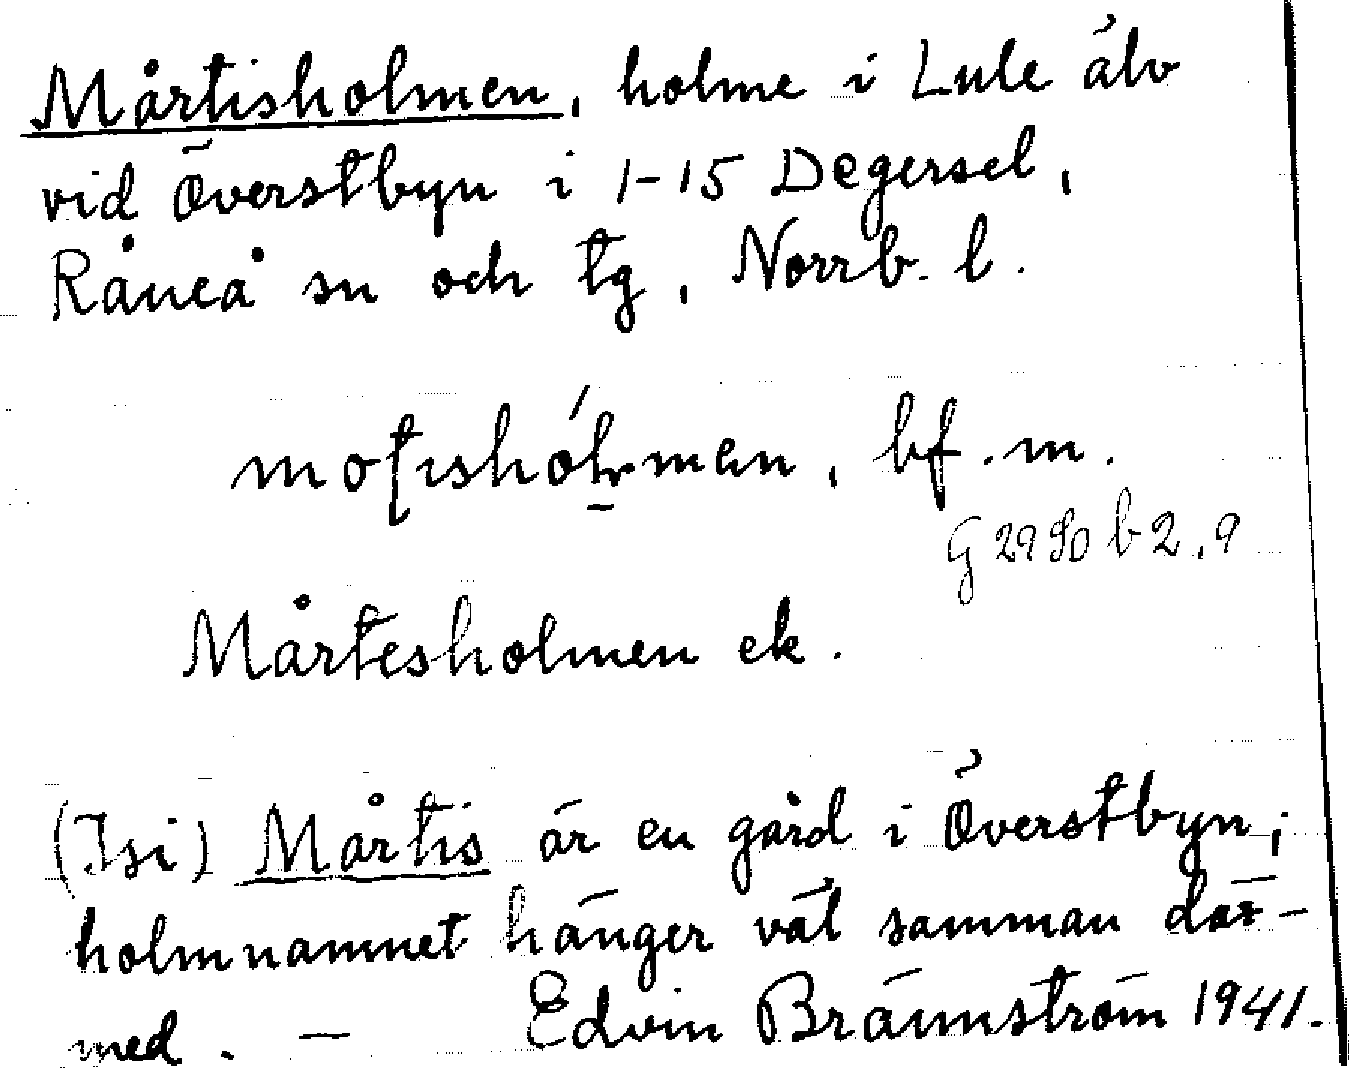 Mårtisholmen, holme i Lule älv
vid Överstbyn i 1-15 Degersel,
Råneå sn och tg, Norrb. l.
bf. m.
G 2990 b 2, 9
Mårtesholmen ek.
(Isi) Mårtis är en gård i Överstbyn;
holmnamnet hänger väl samman där-
med. — Edvin Brännström 1941.